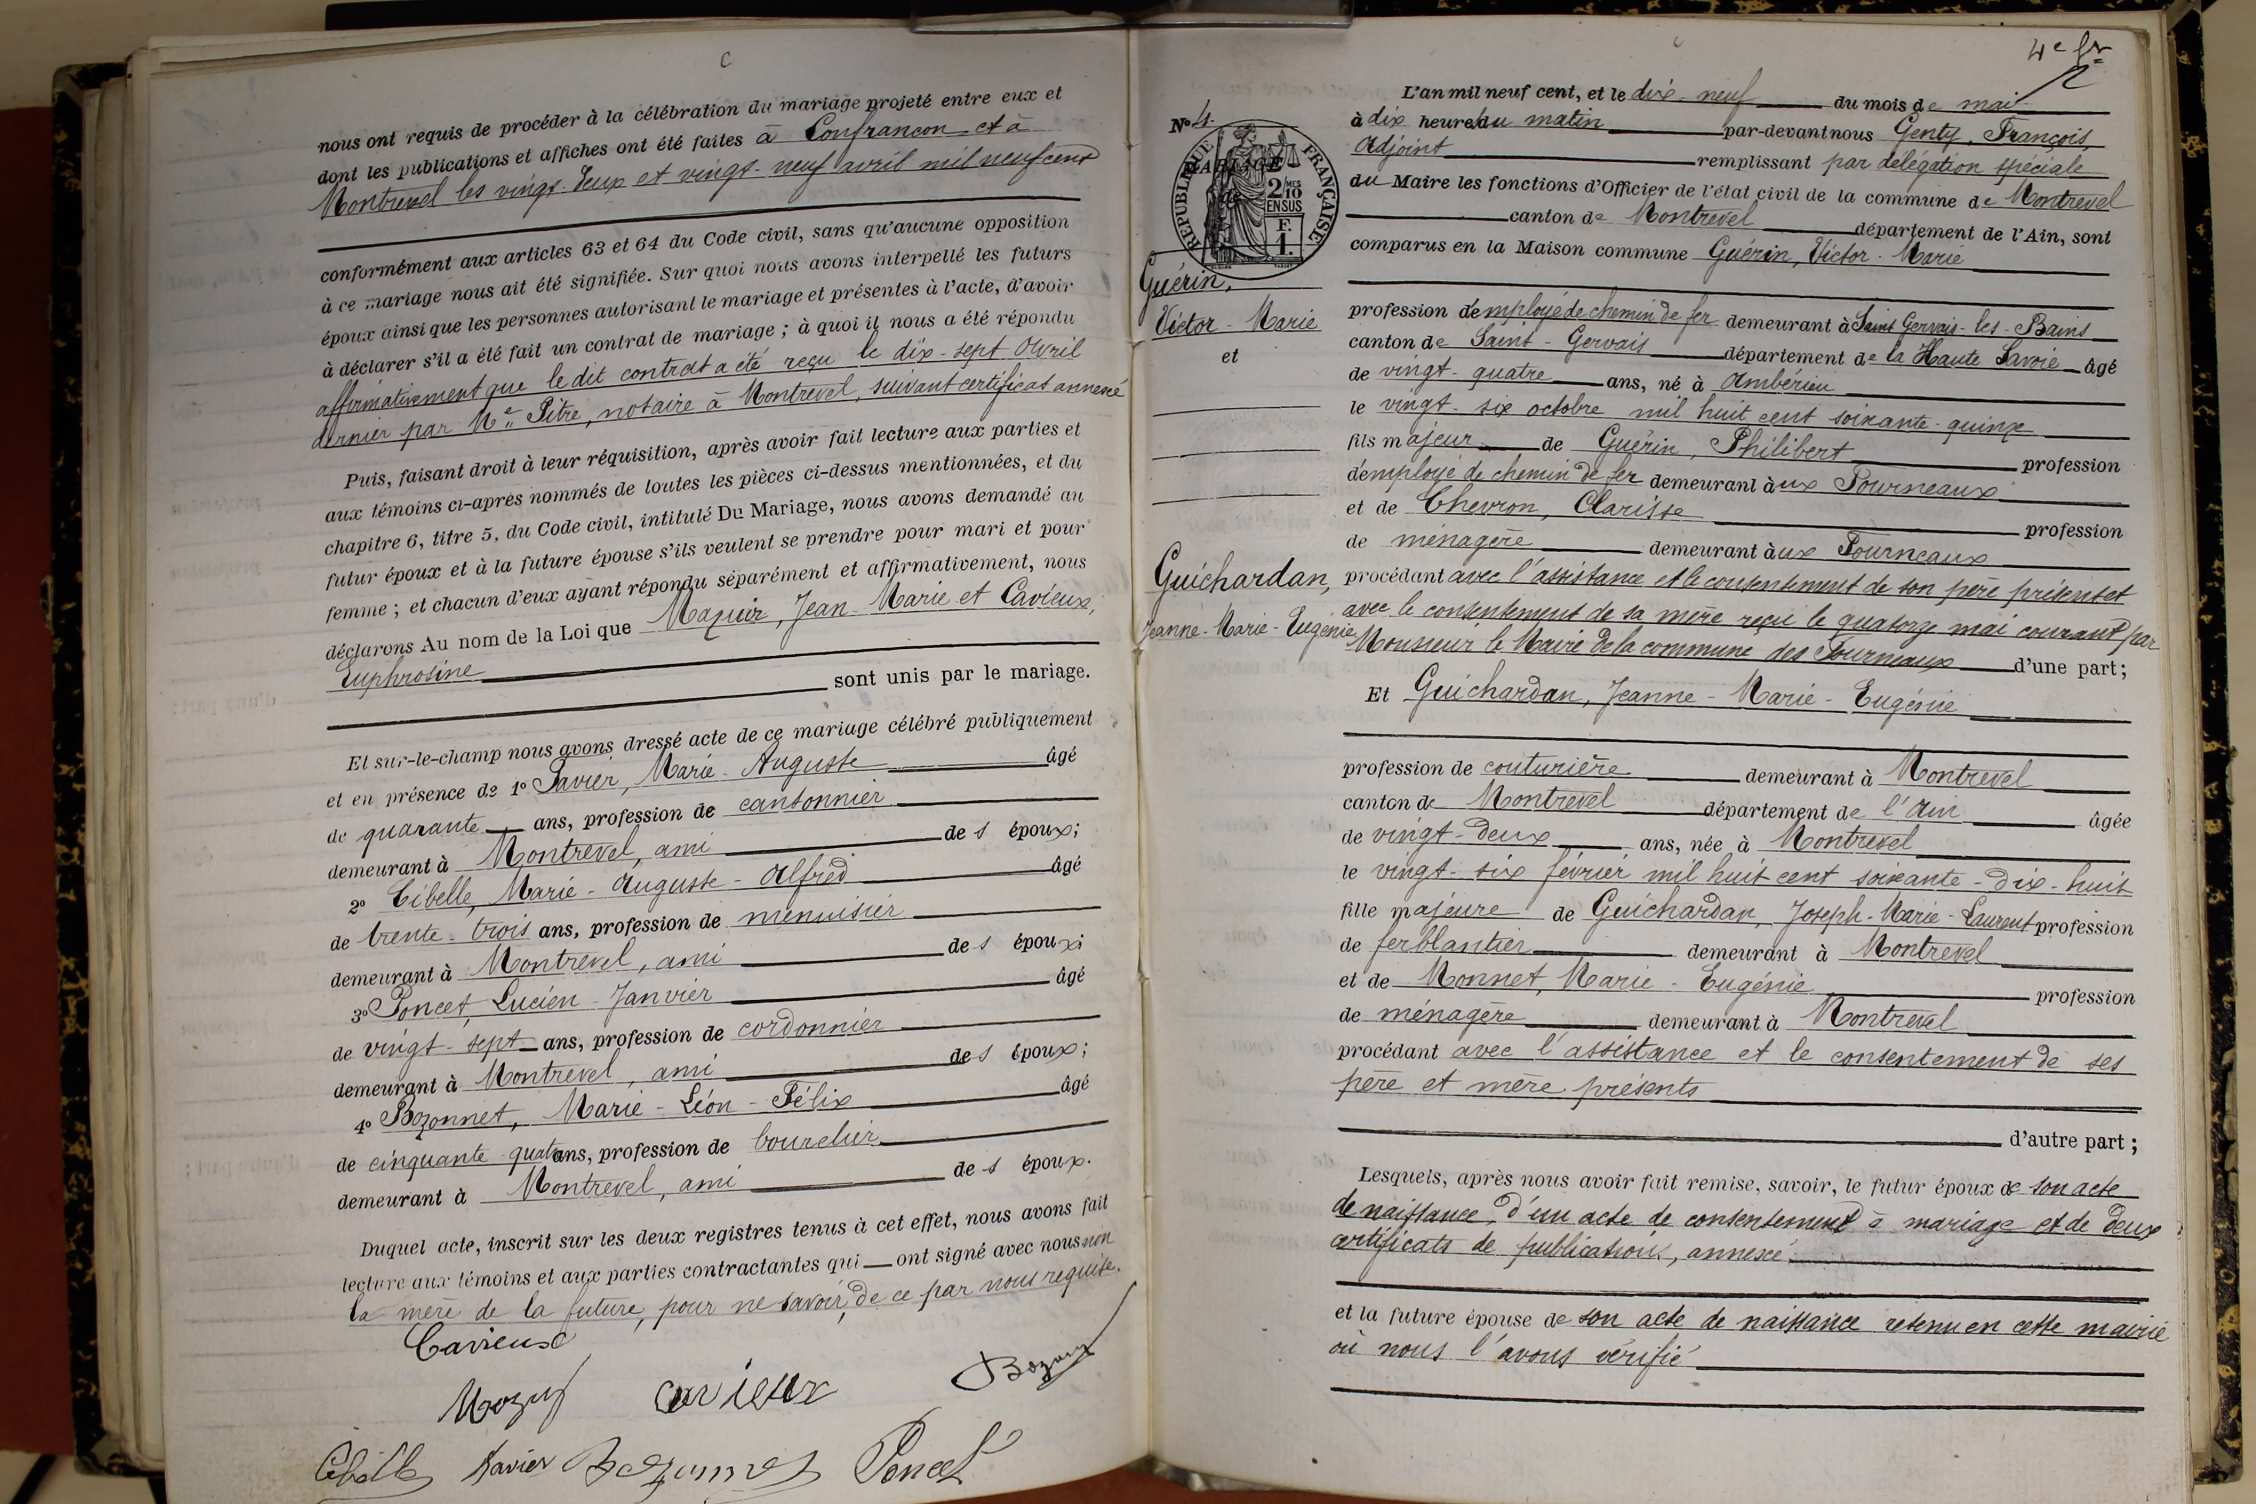 nous ont requis de procéder à la célébration du mariage projeté entre eux et
dont les publications et affiches ont été faites à Confrançon et à
Montrevel les vingt-deux et vingt-neuf avril mil neuf cent
conformément aux articles 63 et 64 du Code civil, sans qu'aucune opposition
à ce mariage nous ait été signifiée. Sur quoi nous avons interpellé les futurs
époux ainsi que les personnes autorisant le mariage et présentes à l'acte, d'avoir
à déclarer s'il a été fait un contrat de mariage ; à quoi il nous a été répondu
affirmativement que le dit contrat a été reçu le dix-sept Avril
dernier par Me Pitre, notaire à Montrevel, suivant certificat annexé
Puis, faisant droit à leur réquisition, après avoir fait lecture aux parties et
aux témoins ci-après nommés de toutes les pièces ci-dessus mentionnées, et du
chapitre 6, titre 5, du Code civil, intitulé Du Mariage, nous avons demandé au
futur époux et à la future épouse s'ils veulent se prendre pour mari et pour
femme ; et chacun d'eux ayant répondu séparément et affirmativement, nous
déclarons Au nom de la Loi que Mazuir, Jean-Marie et Cavieux,
Euphrosine
sont unis par le mariage.
Et sur-le-champ nous avons dressé acte de ce mariage célébré publiquement
et en présence de 1° Savier, Marie-Auguste âgé
de quarante ans, profession de cantonnier
demeurant à Montrevel, ami des époux;
2° Cibelle, Marie-Auguste-Alfred âgé
de trente-trois ans, profession de menuisier
demeurant à Montrevel, ami des époux;
3° Poncet, Lucien-Janvier âgé
de vingt-sept ans, profession de cordonnier
demeurant à Montrevel, ami des époux;
4° Bozonnet, Marie-Léon-Félix âgé
de cinquante-quatre ans, profession de bourelier
demeurant à Montrevel, ami des époux.
Duquel acte, inscrit sur les deux registres tenus à cet effet, nous avons fait
lecture aux témoins et aux parties contractantes qui ont signé avec nous non
la mère de la future, pour ne savoir, de ce par nous requise.
Cavieux
Cavieux
Cibelle Savier Bozonnet Poncet
4e fr
N° 4
MARIAGE
RÉPUBLIQUE FRANÇAISE
2/10 MES
EN SUS
F.
1.
Guérin,
Victor-Marie
et
Guichardan,
Jeanne-Marie-Eugénie
L'an mil neuf cent, et le dix-neuf du mois de mai
à dix heures du matin par-devant nous Genty, François,
Adjoint remplissant par délégation spéciale
du Maire les fonctions d'Officier de l'état civil de la commune de Montrevel
canton de Montrevel département de l'Ain, sont
comparus en la Maison commune Guérin, Victor-Marie
profession d'employé de chemin de fer demeurant à Saint Gervais-les-Bains
canton de Saint-Gervais département de la Haute Savoie âgé
de vingt-quatre ans, né à Ambérieu
le vingt-six octobre mil huit cent soixante-quinze
fils majeur de Guérin, Philibert profession
d'employé de chemin de fer demeurant aux Fourneaux
et de Chevron, Clarisse profession
de ménagère demeurant aux Fourneaux
procédant avec l'assistance et le consentement de son père présent et
avec le consentement de sa mère reçu le quatorze mai courant par
Monsieur le Maire de la commune des Fourneaux d'une part;
Et Guichardan, Jeanne-Marie-Eugénie
profession de couturière demeurant à Montrevel
canton de Montrevel département de l'Ain âgée
de vingt-deux ans, née à Montrevel
le vingt-six février mil huit cent soixante-dix-huit
fille majeure de Guichardan, Joseph-Marie-Laurent profession
de ferblantier demeurant à Montrevel
et de Monnet, Marie-Eugénie profession
de ménagère demeurant à Montrevel
procédant avec l'assistance et le consentement de ses
père et mère présents
d'autre part ;
Lesquels, après nous avoir fait remise, savoir, le futur époux de son acte
de naissance, d'un acte de consentement à mariage et de deux
certificats de publications, annexé
et la future épouse de son acte de naissance retenu en cette mairie
où nous l'avons vérifié